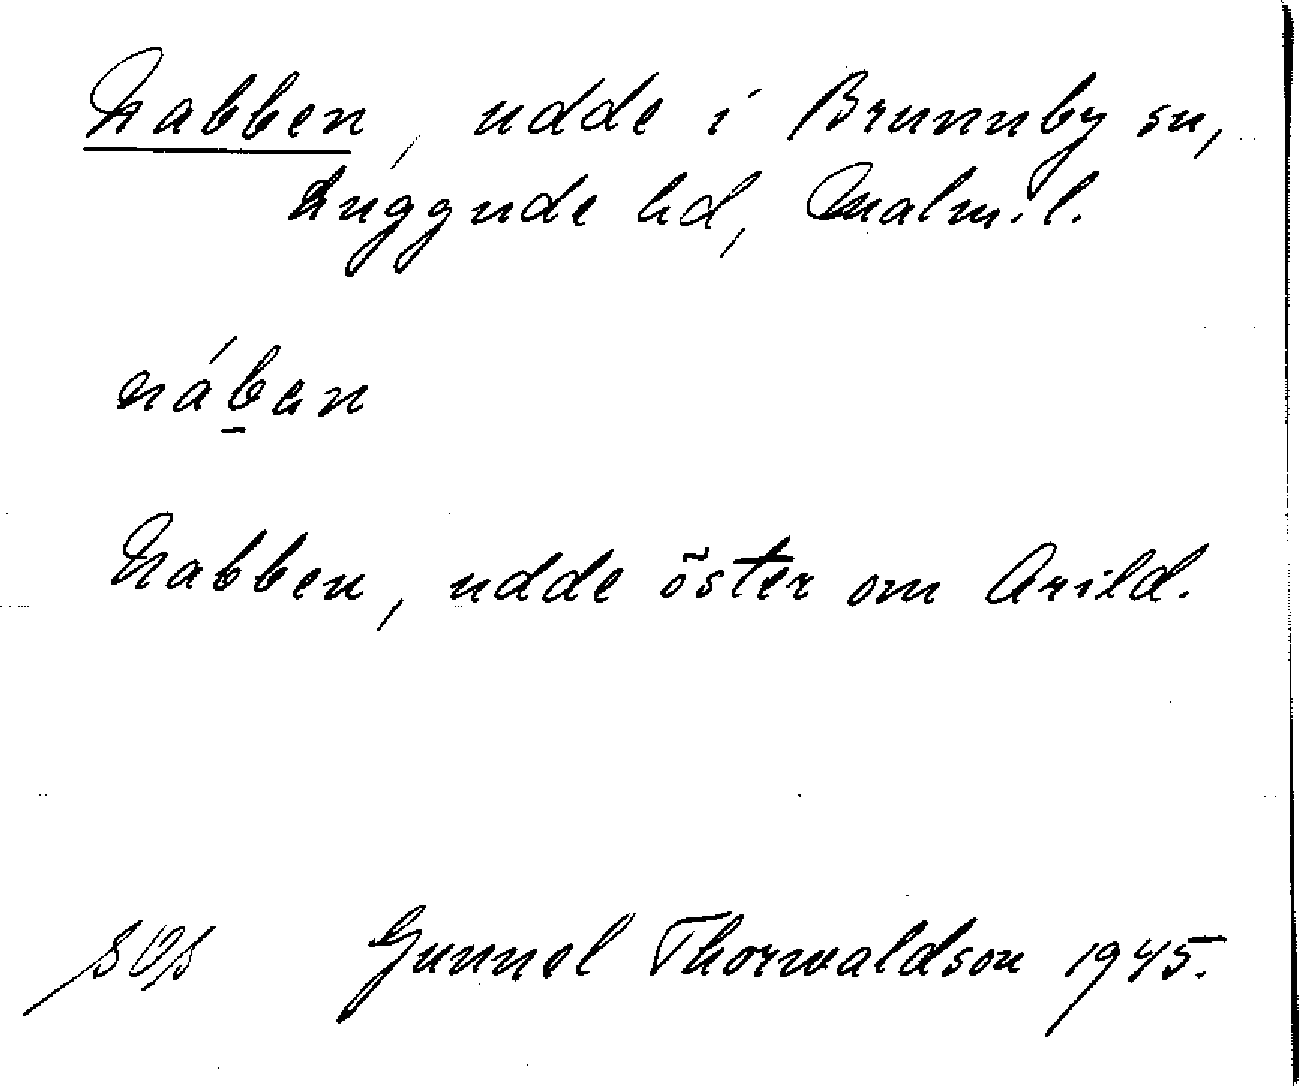 Nabben, udde i Brunnby sn,
Luggude hd, Malm. l.
náben
Nabben, udde öster om Arild.
Gunnel Thorwaldson 1945.